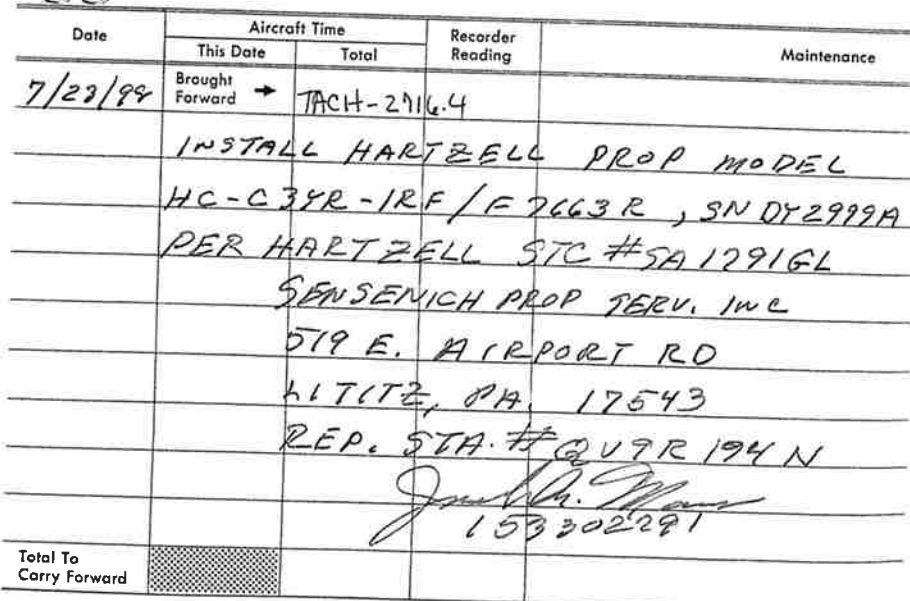 Date Aircraft Time Recorder Reading Maintenance
This Date Total
7/23/98 Brought Forward → TACH-2716.4
INSTALL HARTZELL PROP MODEL
HC-C3YR-1RF/F7663R, SN DY2999A
PER HARTZELL STC #SA1291GL
SENSENICH PROP SERV. INC
519 E. AIRPORT RD
LITITZ, PA. 17543
REP. STA. # QU9R194N
153302291
Total To Carry Forward